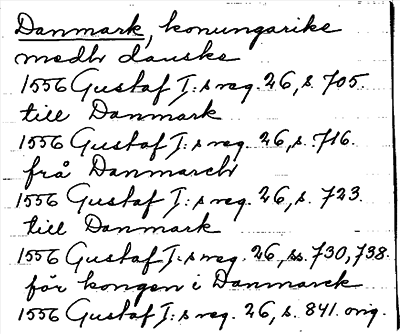 Danmark, konungarike
medlv danske
1556 Gustaf I:s reg. 26, s. 705.
till Danmark
1556 Gustaf I:s reg. 26, s. 716.
frå Danmarch
1556 Gustaf I:s reg. 26, s. 723.
till Danmark
1556 Gustaf I:s reg. 26, ss. 730, 738.
för kongen i Danmarck
1556 Gustaf I:s reg. 26, s. 841. orig.